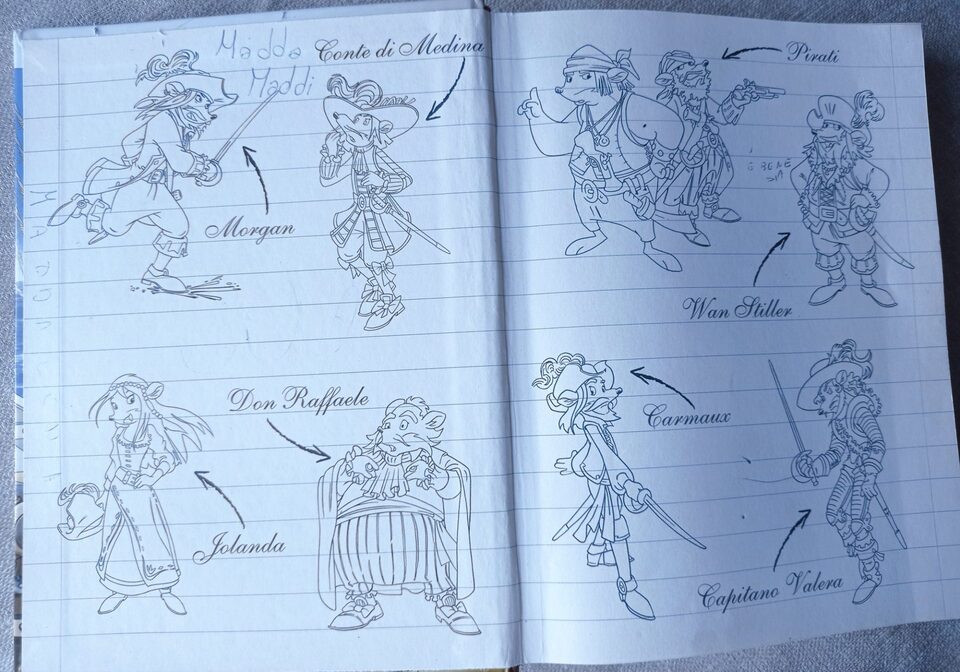 Madda
Maddi
Conte di Medina
Morgan
Don Raffaele
Jolanda
Pirati
Wan Stiller
Carmaux
Capitano Valera